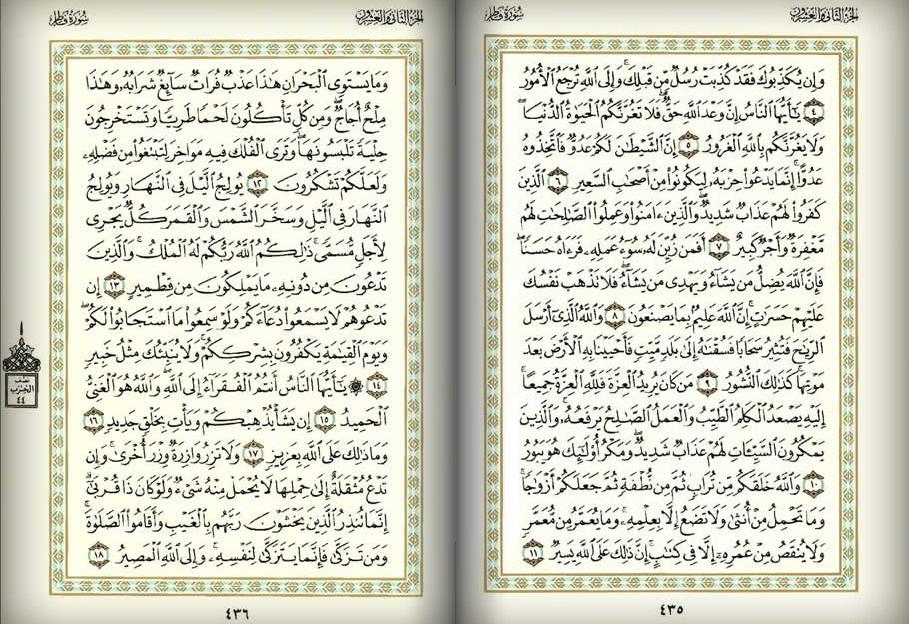 الجزء الثاني والعشرون
سورة فاطر
وَإِن يُكَذِّبُوكَ فَقَدْ كُذِّبَتْ رُسُلٌ مِّن قَبْلِكَ ۚ وَإِلَى ٱللَّهِ تُرْجَعُ ٱلْأُمُورُ
٤ يَٰٓأَيُّهَا ٱلنَّاسُ إِنَّ وَعْدَ ٱللَّهِ حَقٌّ ۖ فَلَا تَغُرَّنَّكُمُ ٱلْحَيَوٰةُ ٱلدُّنْيَا ۖ
وَلَا يَغُرَّنَّكُم بِٱللَّهِ ٱلْغَرُورُ ٥ إِنَّ ٱلشَّيْطَٰنَ لَكُمْ عَدُوٌّ فَٱتَّخِذُوهُ
عَدُوًّا ۚ إِنَّمَا يَدْعُوا۟ حِزْبَهُۥ لِيَكُونُوا۟ مِنْ أَصْحَٰبِ ٱلسَّعِيرِ ٦ ٱلَّذِينَ
كَفَرُوا۟ لَهُمْ عَذَابٌ شَدِيدٌ ۖ وَٱلَّذِينَ ءَامَنُوا۟ وَعَمِلُوا۟ ٱلصَّٰلِحَٰتِ لَهُم
مَّغْفِرَةٌ وَأَجْرٌ كَبِيرٌ ٧ أَفَمَن زُيِّنَ لَهُۥ سُوٓءُ عَمَلِهِۦ فَرَءَاهُ حَسَنًا ۖ
فَإِنَّ ٱللَّهَ يُضِلُّ مَن يَشَآءُ وَيَهْدِى مَن يَشَآءُ ۖ فَلَا تَذْهَبْ نَفْسُكَ
عَلَيْهِمْ حَسَرَٰتٍ ۚ إِنَّ ٱللَّهَ عَلِيمٌۢ بِمَا يَصْنَعُونَ ٨ وَٱللَّهُ ٱلَّذِىٓ أَرْسَلَ
ٱلرِّيَٰحَ فَتُثِيرُ سَحَابًا فَسُقْنَٰهُ إِلَىٰ بَلَدٍ مَّيِّتٍ فَأَحْيَيْنَا بِهِ ٱلْأَرْضَ بَعْدَ
مَوْتِهَا ۚ كَذَٰلِكَ ٱلنُّشُورُ ٩ مَن كَانَ يُرِيدُ ٱلْعِزَّةَ فَلِلَّهِ ٱلْعِزَّةُ جَمِيعًا ۚ
إِلَيْهِ يَصْعَدُ ٱلْكَلِمُ ٱلطَّيِّبُ وَٱلْعَمَلُ ٱلصَّٰلِحُ يَرْفَعُهُۥ ۚ وَٱلَّذِينَ
يَمْكُرُونَ ٱلسَّيِّـَٔاتِ لَهُمْ عَذَابٌ شَدِيدٌ ۖ وَمَكْرُ أُو۟لَٰٓئِكَ هُوَ يَبُورُ
١٠ وَٱللَّهُ خَلَقَكُم مِّن تُرَابٍ ثُمَّ مِن نُّطْفَةٍ ثُمَّ جَعَلَكُمْ أَزْوَٰجًا ۚ
وَمَا تَحْمِلُ مِنْ أُنثَىٰ وَلَا تَضَعُ إِلَّا بِعِلْمِهِۦ ۚ وَمَا يُعَمَّرُ مِن مُّعَمَّرٍ
وَلَا يُنقَصُ مِنْ عُمُرِهِۦٓ إِلَّا فِى كِتَٰبٍ ۚ إِنَّ ذَٰلِكَ عَلَى ٱللَّهِ يَسِيرٌ ١١
٤٣٥
الجزء الثاني والعشرون
سورة فاطر
وَمَا يَسْتَوِى ٱلْبَحْرَانِ هَٰذَا عَذْبٌ فُرَاتٌ سَآئِغٌ شَرَابُهُۥ وَهَٰذَا
مِلْحٌ أُجَاجٌ ۖ وَمِن كُلٍّ تَأْكُلُونَ لَحْمًا طَرِيًّا وَتَسْتَخْرِجُونَ
حِلْيَةً تَلْبَسُونَهَا ۖ وَتَرَى ٱلْفُلْكَ فِيهِ مَوَاخِرَ لِتَبْتَغُوا۟ مِن فَضْلِهِۦ
وَلَعَلَّكُمْ تَشْكُرُونَ ١٢ يُولِجُ ٱلَّيْلَ فِى ٱلنَّهَارِ وَيُولِجُ
ٱلنَّهَارَ فِى ٱلَّيْلِ وَسَخَّرَ ٱلشَّمْسَ وَٱلْقَمَرَ كُلٌّ يَجْرِى
لِأَجَلٍ مُّسَمًّى ۚ ذَٰلِكُمُ ٱللَّهُ رَبُّكُمْ لَهُ ٱلْمُلْكُ ۚ وَٱلَّذِينَ
تَدْعُونَ مِن دُونِهِۦ مَا يَمْلِكُونَ مِن قِطْمِيرٍ ١٣ إِن
تَدْعُوهُمْ لَا يَسْمَعُوا۟ دُعَآءَكُمْ وَلَوْ سَمِعُوا۟ مَا ٱسْتَجَابُوا۟ لَكُمْ ۖ
وَيَوْمَ ٱلْقِيَٰمَةِ يَكْفُرُونَ بِشِرْكِكُمْ ۚ وَلَا يُنَبِّئُكَ مِثْلُ خَبِيرٍ
١٤ ۞ يَٰٓأَيُّهَا ٱلنَّاسُ أَنتُمُ ٱلْفُقَرَآءُ إِلَى ٱللَّهِ ۖ وَٱللَّهُ هُوَ ٱلْغَنِىُّ
ٱلْحَمِيدُ ١٥ إِن يَشَأْ يُذْهِبْكُمْ وَيَأْتِ بِخَلْقٍ جَدِيدٍ ١٦
وَمَا ذَٰلِكَ عَلَى ٱللَّهِ بِعَزِيزٍ ١٧ وَلَا تَزِرُ وَازِرَةٌ وِزْرَ أُخْرَىٰ ۚ وَإِن
تَدْعُ مُثْقَلَةٌ إِلَىٰ حِمْلِهَا لَا يُحْمَلْ مِنْهُ شَىْءٌ وَلَوْ كَانَ ذَا قُرْبَىٰٓ ۗ
إِنَّمَا تُنذِرُ ٱلَّذِينَ يَخْشَوْنَ رَبَّهُم بِٱلْغَيْبِ وَأَقَامُوا۟ ٱلصَّلَوٰةَ ۚ
وَمَن تَزَكَّىٰ فَإِنَّمَا يَتَزَكَّىٰ لِنَفْسِهِۦ ۚ وَإِلَى ٱللَّهِ ٱلْمَصِيرُ ١٨
٤٣٦
نصف
الحزب
٤٤